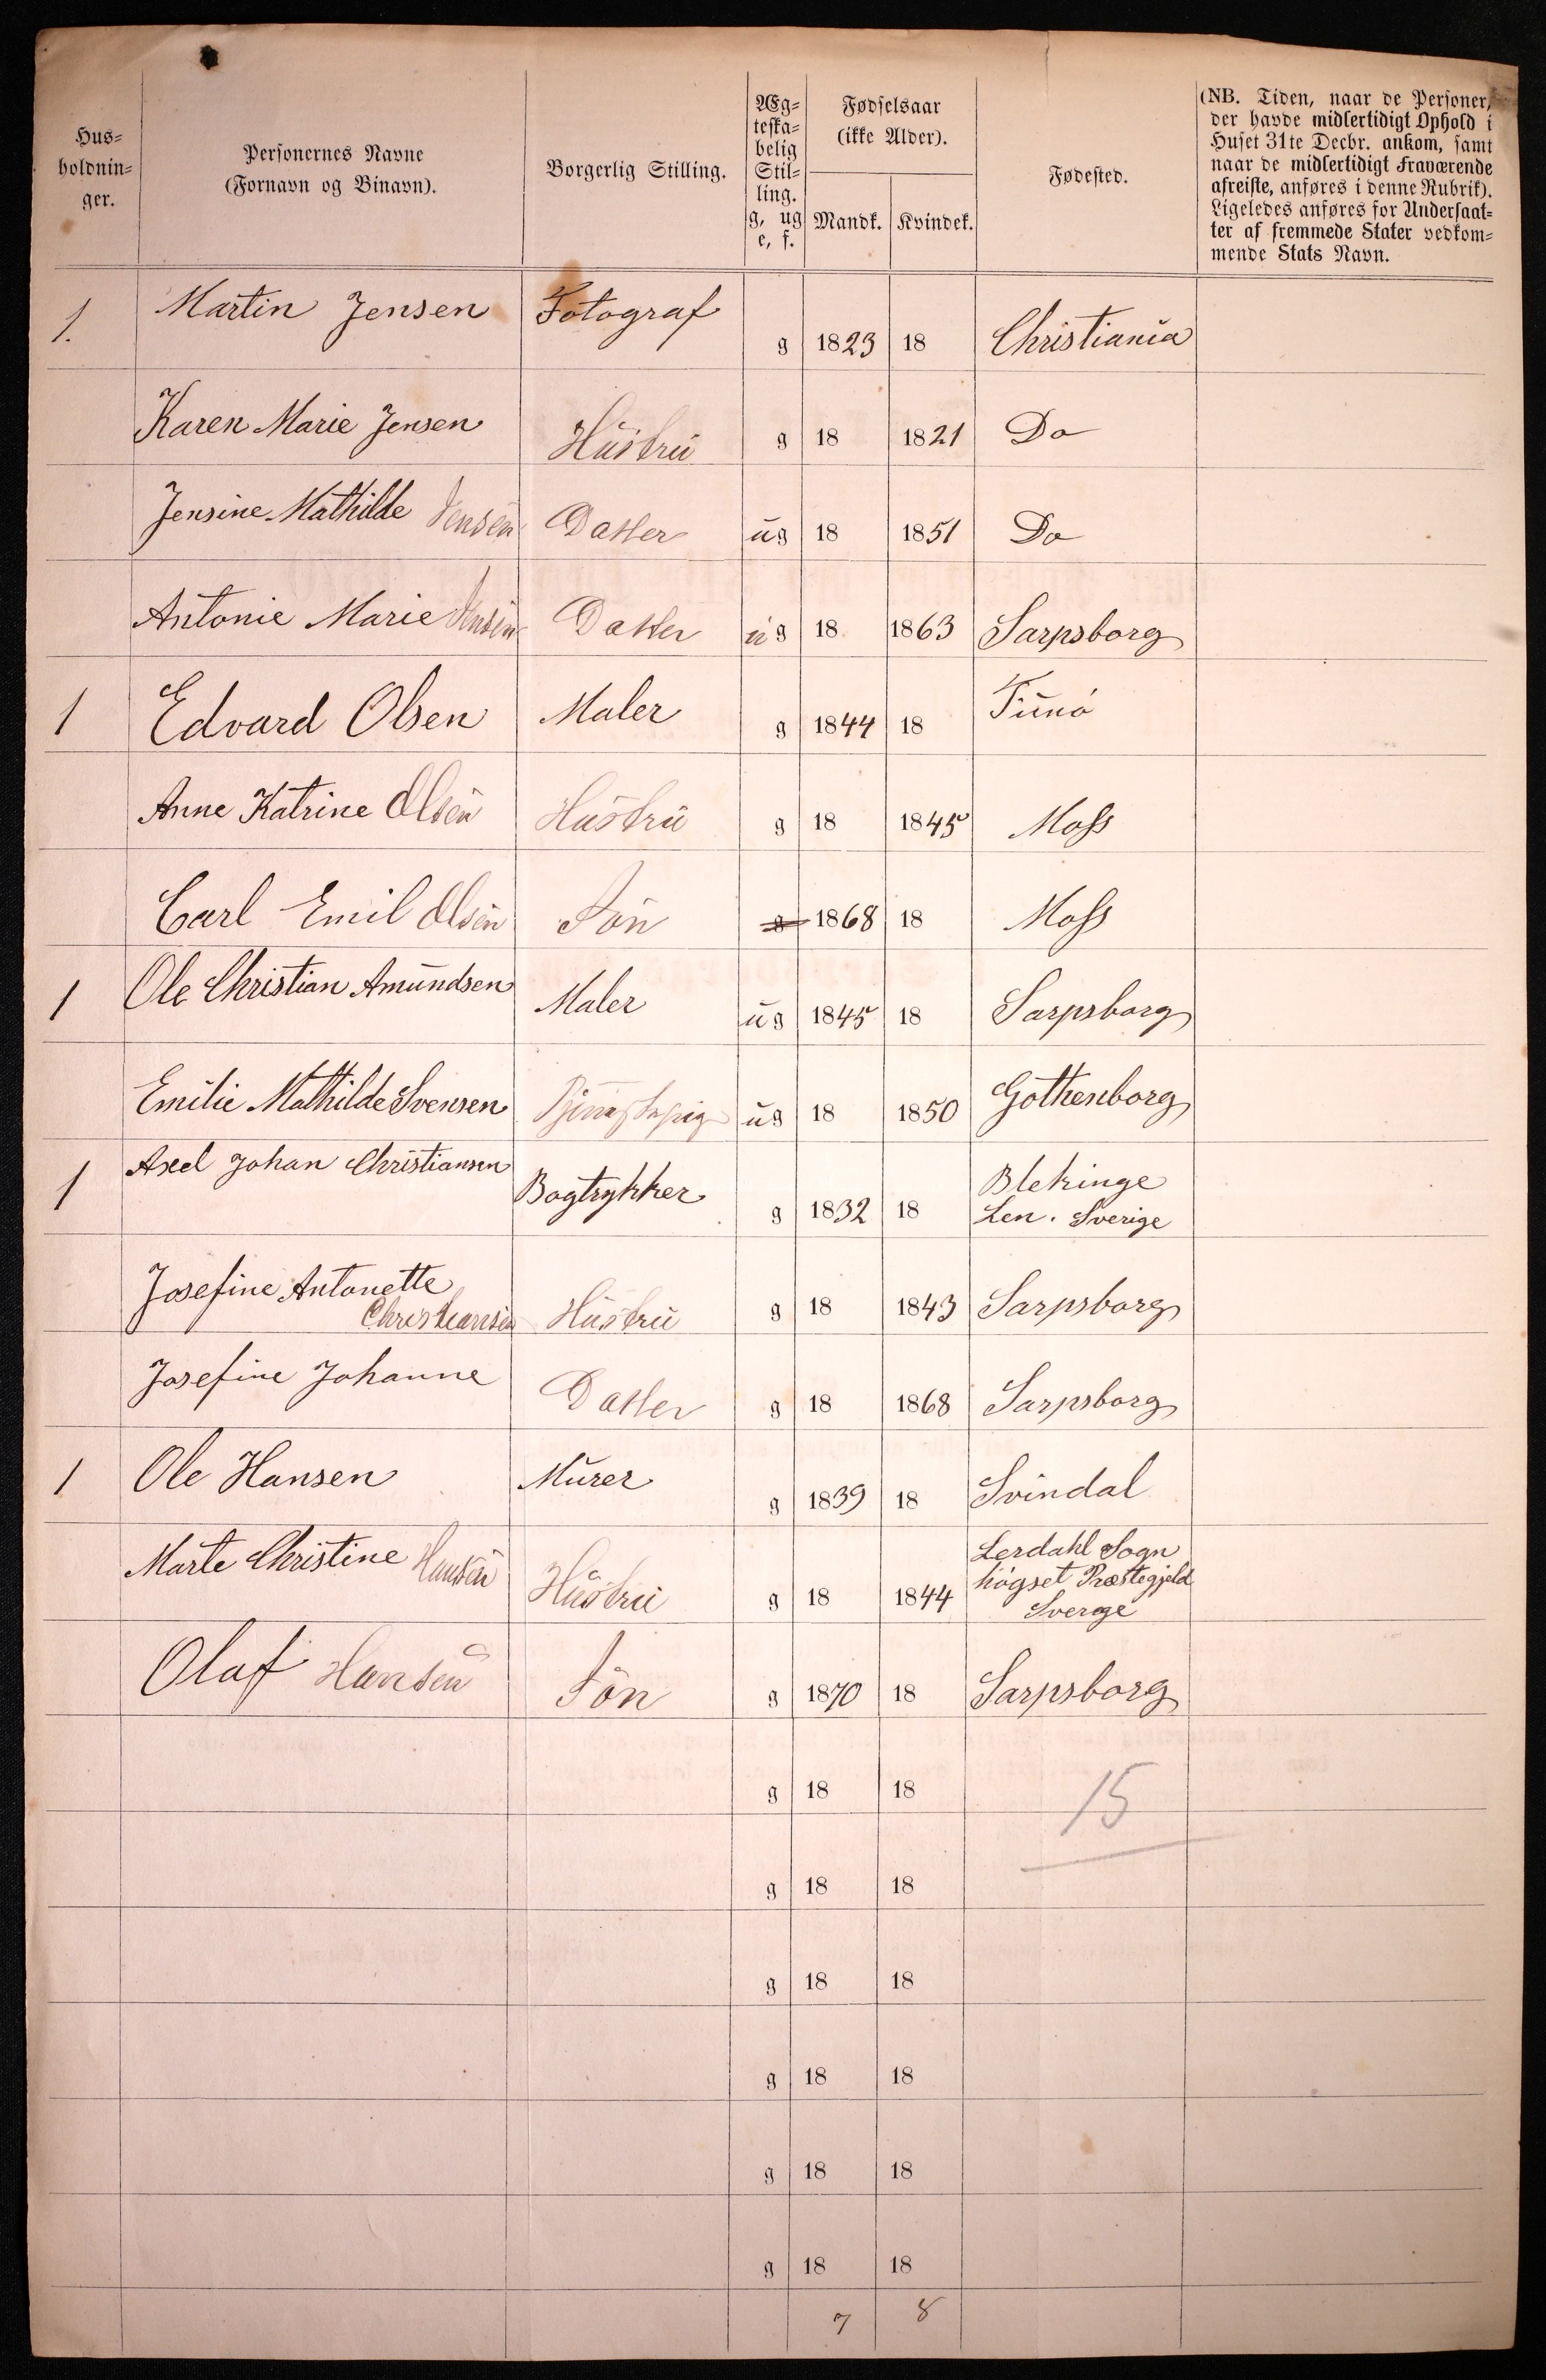 Hus-
holdnin-
ger.
Personernes Navne
(Fornavn og Binavn).
Borgerlig Stilling.
Æg-
teska-
belig
Stil-
ling.
g, ug
e, f.
Fødselsaar
(ikke Alder).
Mandk. Kvindek.
Fødested.
(NB. Tiden, naar de Personer,
der havde midlertidigt Ophold i
Huset 31te Decbr. ankom, samt
naar de midlertidigt Fraværende
afreiste, anføres i denne Rubrik).
Ligeledes anføres for Undersaat-
ter af fremmede Stater vedkom-
mende Stats Navn.
1. Martin Jensen Fotograf g 1823 18 Christiania
Karen Marie Jensen Hustru g 18 1821 Do
Jensine Mathilde Jensen Datter ug 18 1851 Do
Antonie Marie Jensen Datter ug 18 1863 Sarpsborg
1 Edvard Olsen Maler g 1844 18 Tunø
Anne Katrine Olsen Hustru g 18 1845 Moss
Carl Emil Olsen Søn g 1868 18 Moss
1 Ole Christian Amundsen Maler ug 1845 18 Sarpsborg
Emilie Mathilde Svensen ug 18 1850 Gothenborg
1 Axel Johan Christiansen Bogtrykker g 1832 18 Blekinge
Len. Sverige
Josefine Antonette
Christiansen Hustru g 18 1843 Sarpsborg
Josefine Johanne Datter g 18 1868 Sarpsborg
1 Ole Hansen Murer g 1839 18 Svindal
Marte Christine Hansen Hustru g 18 1844 Lerdahl Sogn
högset Præstegjeld
Sverge
Olaf Hansen Søn g 1870 18 Sarpsborg
g 18 18 15
g 18 18
g 18 18
g 18 18
g 18 18
g 18 18
7 8